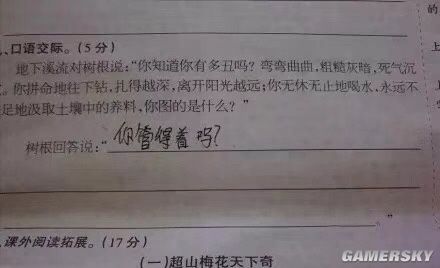 、口语交际。(5分)
地下溪流对树根说:“你知道你有多丑吗?弯弯曲曲,粗糙灰暗,死气沉
。你拼命地往下钻,扎得越深,离开阳光越远;你无休无止地喝水,永远不
足地汲取土壤中的养料,你图的是什么?”
树根回答说:“你管得着吗?
。”
、课外阅读拓展。(17分)
(一)超山梅花天下奇
的
上
GAMERSKY